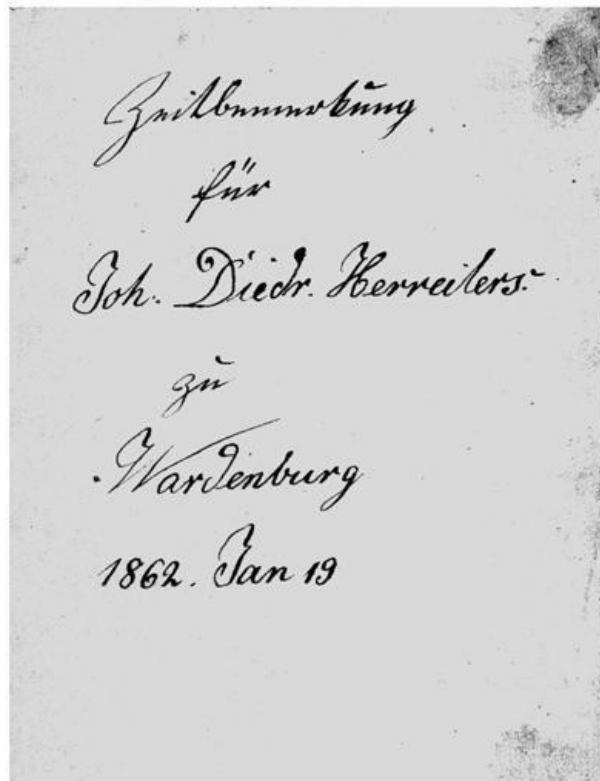 Zeitbemerkung
für
Joh. Diedr. Herreilers.
zu
Wardenburg
1862. Jan 19